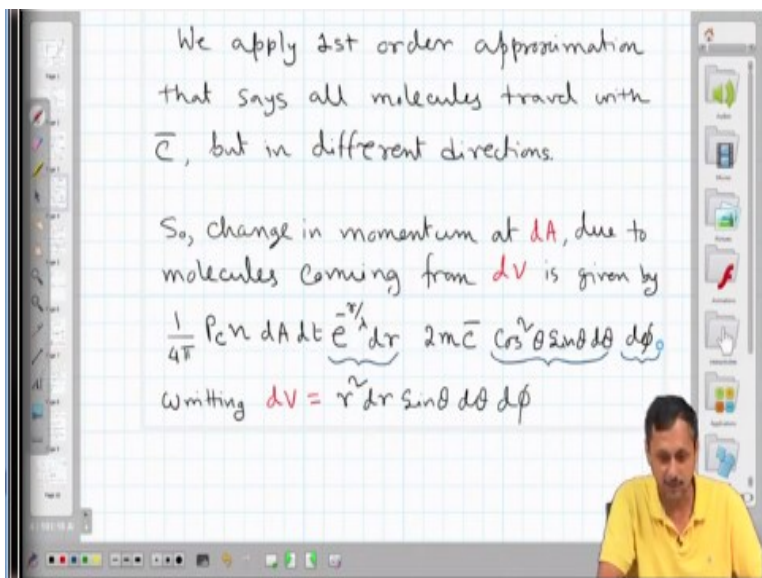 We apply 1st order approximation
that says all molecules travel with
c̅, but in different directions.
So, change in momentum at dA, due to
molecules coming from dV is given by
1/4π P_c n dA dt e^{-r/λ} dr 2m c̅ cos²θ sinθ dθ dφ.
writting dV = r² dr sinθ dθ dφ